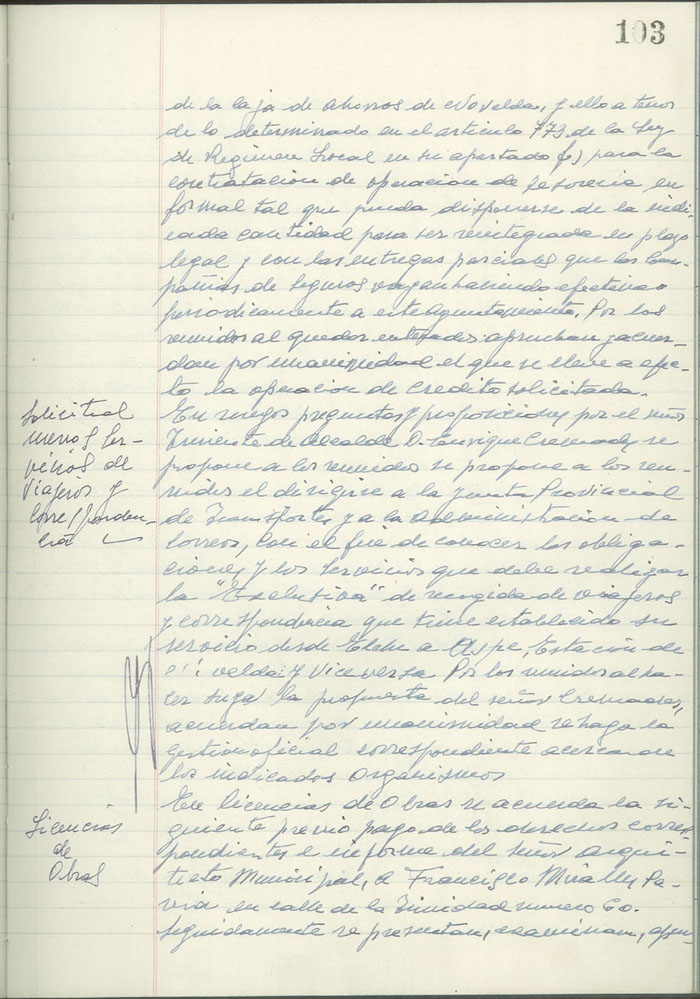 103
de la Caja de Ahorros de Novelda, y ello a tenor
de lo determinado en el articulo 773 de la Ley
de Regimen Local en su apartado para la
contratacion de operacion de Tesoreria en
formal tal que pueda disponerse de la indi
cada cantidad para ser reintegrada en plazo
legal y con las entregas parciales que las Com-
pañias de Seguros vayan haciendo efectivas
periodicamente a este Ayuntamiento. Por los
reunidos al quedar enterados aprueban y acuer-
dan por unanimidad el que se lleve a efec-
to la operacion de Credito solicitada.
Solicitud
menos Ser-
vicios de
Viajeros y
Corresponden-
cia
En ruegos preguntas y proposiciones por el señor
Teniente de Alcalde D. Enrique Cremades se
propone a los reunidos se propone a los reu-
nidos el dirigirse a la Junta Provincial
de Transportes y a la Administracion de
Correos, con el fin de conocer las obliga-
ciones y los servicios que debe realizar
la "Exclusiva" de recogida de viajeros
y correspondencia que tiene establecido su
servicio desde Elche a Aspe, Estación de
velda y Viceversa. Por los reunidos al ha-
cer suya la propuesta del señor Cremades,
acuerdan por unanimidad se haga la
gestion oficial correspondiente acerca de
los indicados Organismos
Licencias
de
Obras
En licencias de Obras se acuerda la si-
guiente previo pago de los derechos corres
pondientes e informe del señor Arqui-
tecto Municipal, a Francisco Miralles Pa-
via en calle de la Trinidad numero 60.
Seguidamente se presentan, examinan,